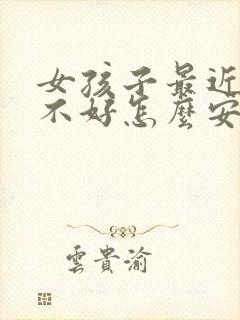 女孩子最近
不好怎麼安
雲貴渝